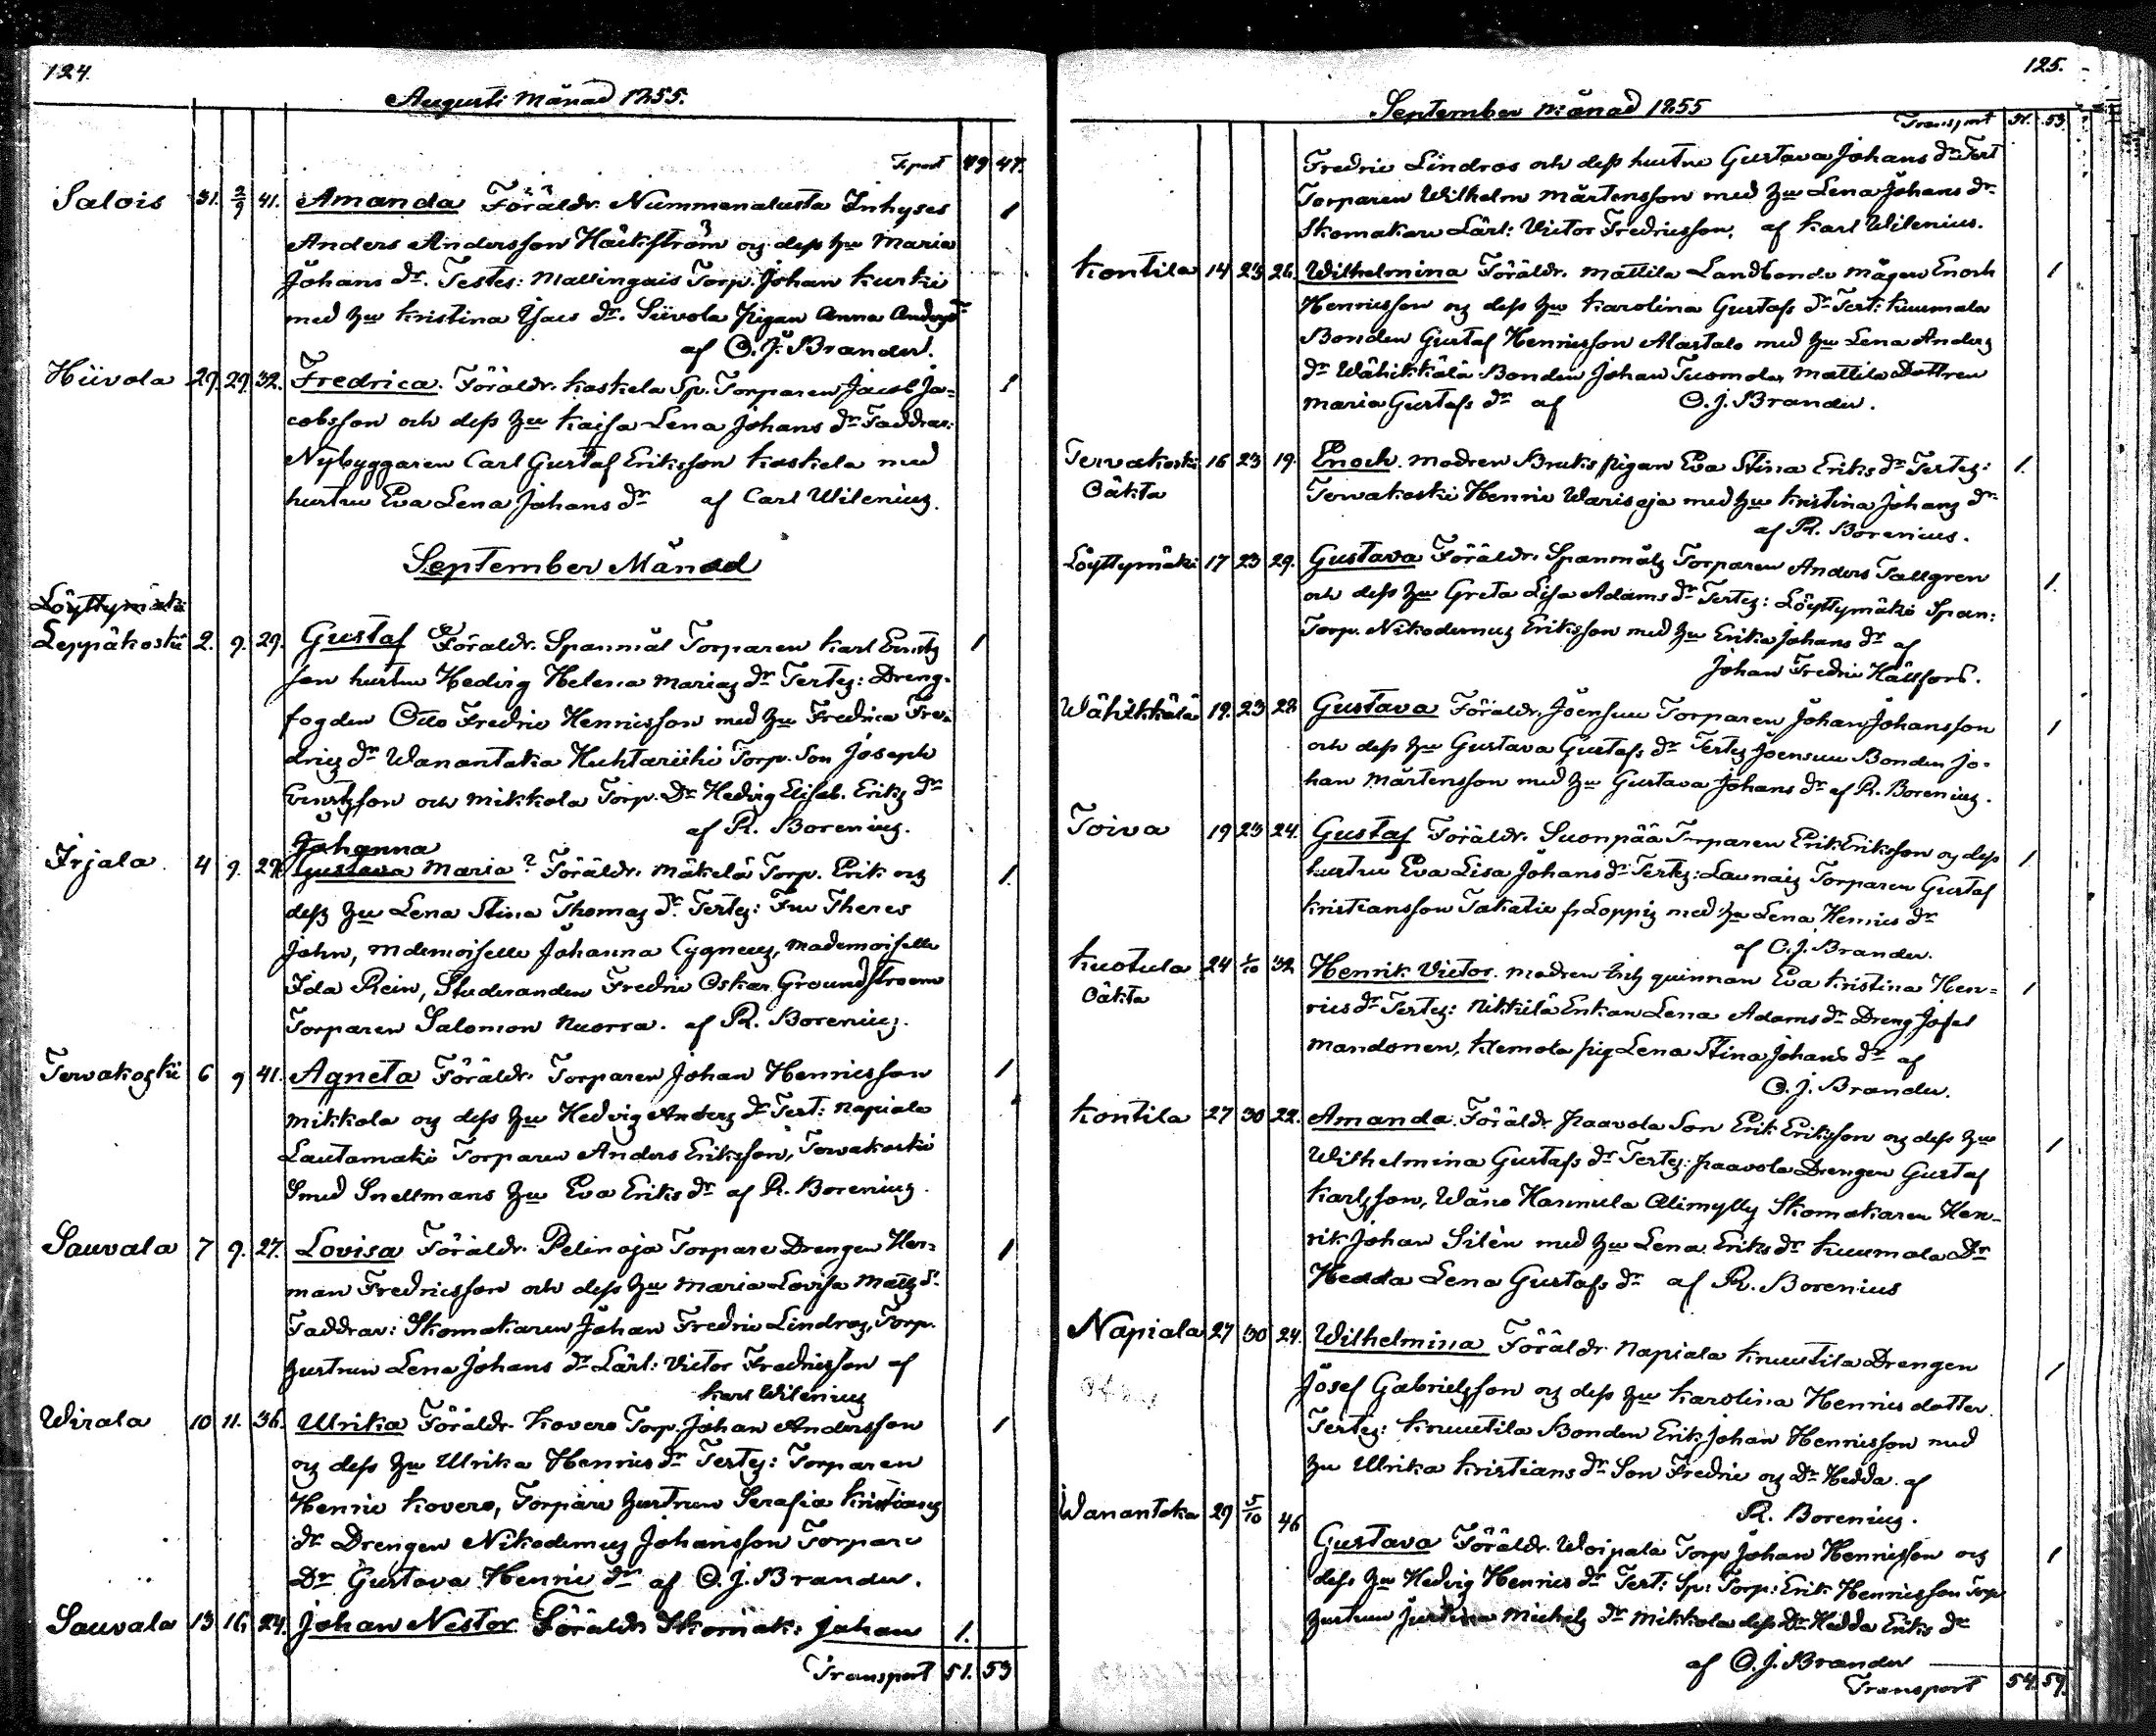 124.
Augusti Månad 1855.
Tsport 49 47.
Salois 31. 2/9 41. Amanda Föräldr. Nummenalusta Inhyses 1
Anders Andersson Häckström og dess hu Maria
Johans dr. Testes: Mallingais Torp. Johan Kurki
med hu Kristina Isacs dr. Siivola Pigan Anna Anders dr
af O. J. Brander.
Hiivola 29. 29. 32. Fredrica. Föräldr. Kaskela Sp. Torparen Jacob Ja= 1
cobsson och dess hu Kaisa Lena Johans dr Faddrar:
Nybyggaren Carl Gustaf Eriksson Kaskela med
hustru Eva Lena Johans dr af Carl Wilenius.
September Månad
Löyttymäki
Leppäkoski 2. 9. 29. Gustaf Föräldr. Spanmål Torparen Karl Ernsts 1
son hustru Hedvig Helena Marias dr Testes: Dreng-
fogden Otto Fredric Henricsson med hu Fredrica Fre-
drics dr Wanantaka Huhtariihi Torp. Son Joseph
Ernstsson och Mikkola Torp. Dr Hedvig Elisab. Eriks dr
af R. Borenius.
Johanna
Irjala. 4 9. 29. Gustava Maria? Föräldr. Mäkelä Torp. Erik og 1.
dess hu Lena Stina Thomas dr. Testes: Fru Theres
John, Mdemoiselle Johanna Cygneus, Mademoiselle
Ida Rein, Studeranden Fredric Oskar Groundstroem
Torparen Salomon Nuorra. af R. Borenius.
Terwakoski 6 9 41. Agneta Föräldr. Torparen Johan Henricsson 1
Mikkola og dess hu Hedvig Anders dr Test: Napiala
Lautamäki Torparen Anders Eriksson, Terwakoski
Smed Snellmans hu Eva Eriks dr af R. Borenius.
Sauvala 7 9. 27. Lovisa Föräldr. Pelinoja Torpare Drengen Her= 1
man Fredricsson och dess hu Maria Lovisa Matts dr.
Faddrar: Skomakaren Johan Fredric Lindros, Torp.
hustrun Lena Johans dr Lärl: Victor Fredricsson af
Karl Wilenius
Wirala 10 11. 36. Ulrika Föräldr. Kovero Torp. Johan Andersson 1
og dess hu Ulrika Henrics dr Testes: Torparen
Henric Kovero, Torpare hustrun Serafia Kristians
dr Drengen Nikodemus Johansson Torpare
Dr Gustava Henric dr af O. J. Brander.
Sauvala 13 16 24. Johan Nestor Föräldr Skomak: Johan 1.
Transport 51. 53
125.
September Månad 1855
Transport 51. 53.
Fredric Lindros och dess hustru Gustava Johans dr Test
Torparen Wilhelm Mårtensson med hu Lena Johans dr.
Skomakare Lärl: Victor Fredricsson, af Karl Wilenius.
Kontila 14 23 26. Wilhelmina Föräldr. Mattila Landbonde Mågen Enoch 1
Henricsson og dess hu Karolina Gustafs dr Test: Kuumola
Bonden Gustaf Henricsson Alastalo med hu Lena Anders
dr Wähikkälä Bonden Johan Tuomola, Mattila Dottren
Maria Gustafs dr af O. J. Brander.
Tervakoski 16 23 19. Enoch. Modren Bruks pigan Eva Stina Eriks dr Testes: 1.
Oäkta Tervakoski Henric Warisoja med hu Kristina Johans dr
af R. Borenius.
Löyttymäki 17 23 29. Gustava Föräldr. Spanmåls Torparen Anders Tallgren 1.
och dess hu Greta Lisa Adams dr Testes: Löyttymäki Span:
Torp. Nikodemus Eriksson med hu Erika Johans dr af
Johan Fredric Hällfors.
Wähikkälä 19. 23 28 Gustava Föräldr. Joensuu Torparen Johan Johansson 1
och dess hu Gustava Gustafs dr Testes Joensuu Bonden Jo-
han Mårtensson med hu Gustava Johans dr af R. Borenius.
Toiva 19 23 24. Gustaf Föräldr. Suonpää Torparen Erik Eriksson og dess 1.
hustru Eva Lisa Johans dr Testes: Launais Torparen Gustaf
Kristiansson Takatie fr Loppis med hu Lena Henrics dr
af O. J. Brander.
Kuotula 24 1/10 32 Henrik Victor. Modren Inh quinnan Eva Kristina Hen= 1
Oäkta rics dr Testes: Nikkilä Enkan Lena Adams dr Dreng Josef
Mandonen, Klemola pig Lena Stina Johans dr af
O. J. Brander.
Kontila 27 30 22. Amanda. Föräldr Paavola Son Erik Eriksson og dess hu 1
Wilhelmina Gustafs dr Testes: Paavola Drengen Gustaf
Karlsson, Wåno Hannula Alimylly Skomakaren Hen-
rik Johan Silén med hu Lena Eriks dr Kuumola Dr
Hedda Lena Gustafs dr af R. Borenius
Napiala 27 30 24. Wilhelmina Föräldr Napiala Knuutila Drengen 1
Josef Gabrielsson og dess hu Karolina Henrics dotter
Testes: Knuutila Bonden Erik Johan Henricsson med
hu Ulrika Kristians dr Son Fredric og Dr Hedda. af
R. Borenius.
Wanantaka 29 5/10 46 Gustava Föräldr. Woipala Torp Johan Henricsson og 1
dess hu Hedvig Henrics dr Test: Sp: Torp: Erik Henricsson Torp
hustrun Justina Michels dr Mikkola dess Dr Hedda Eriks dr
af O. J. Brander
Transport 54. 59.